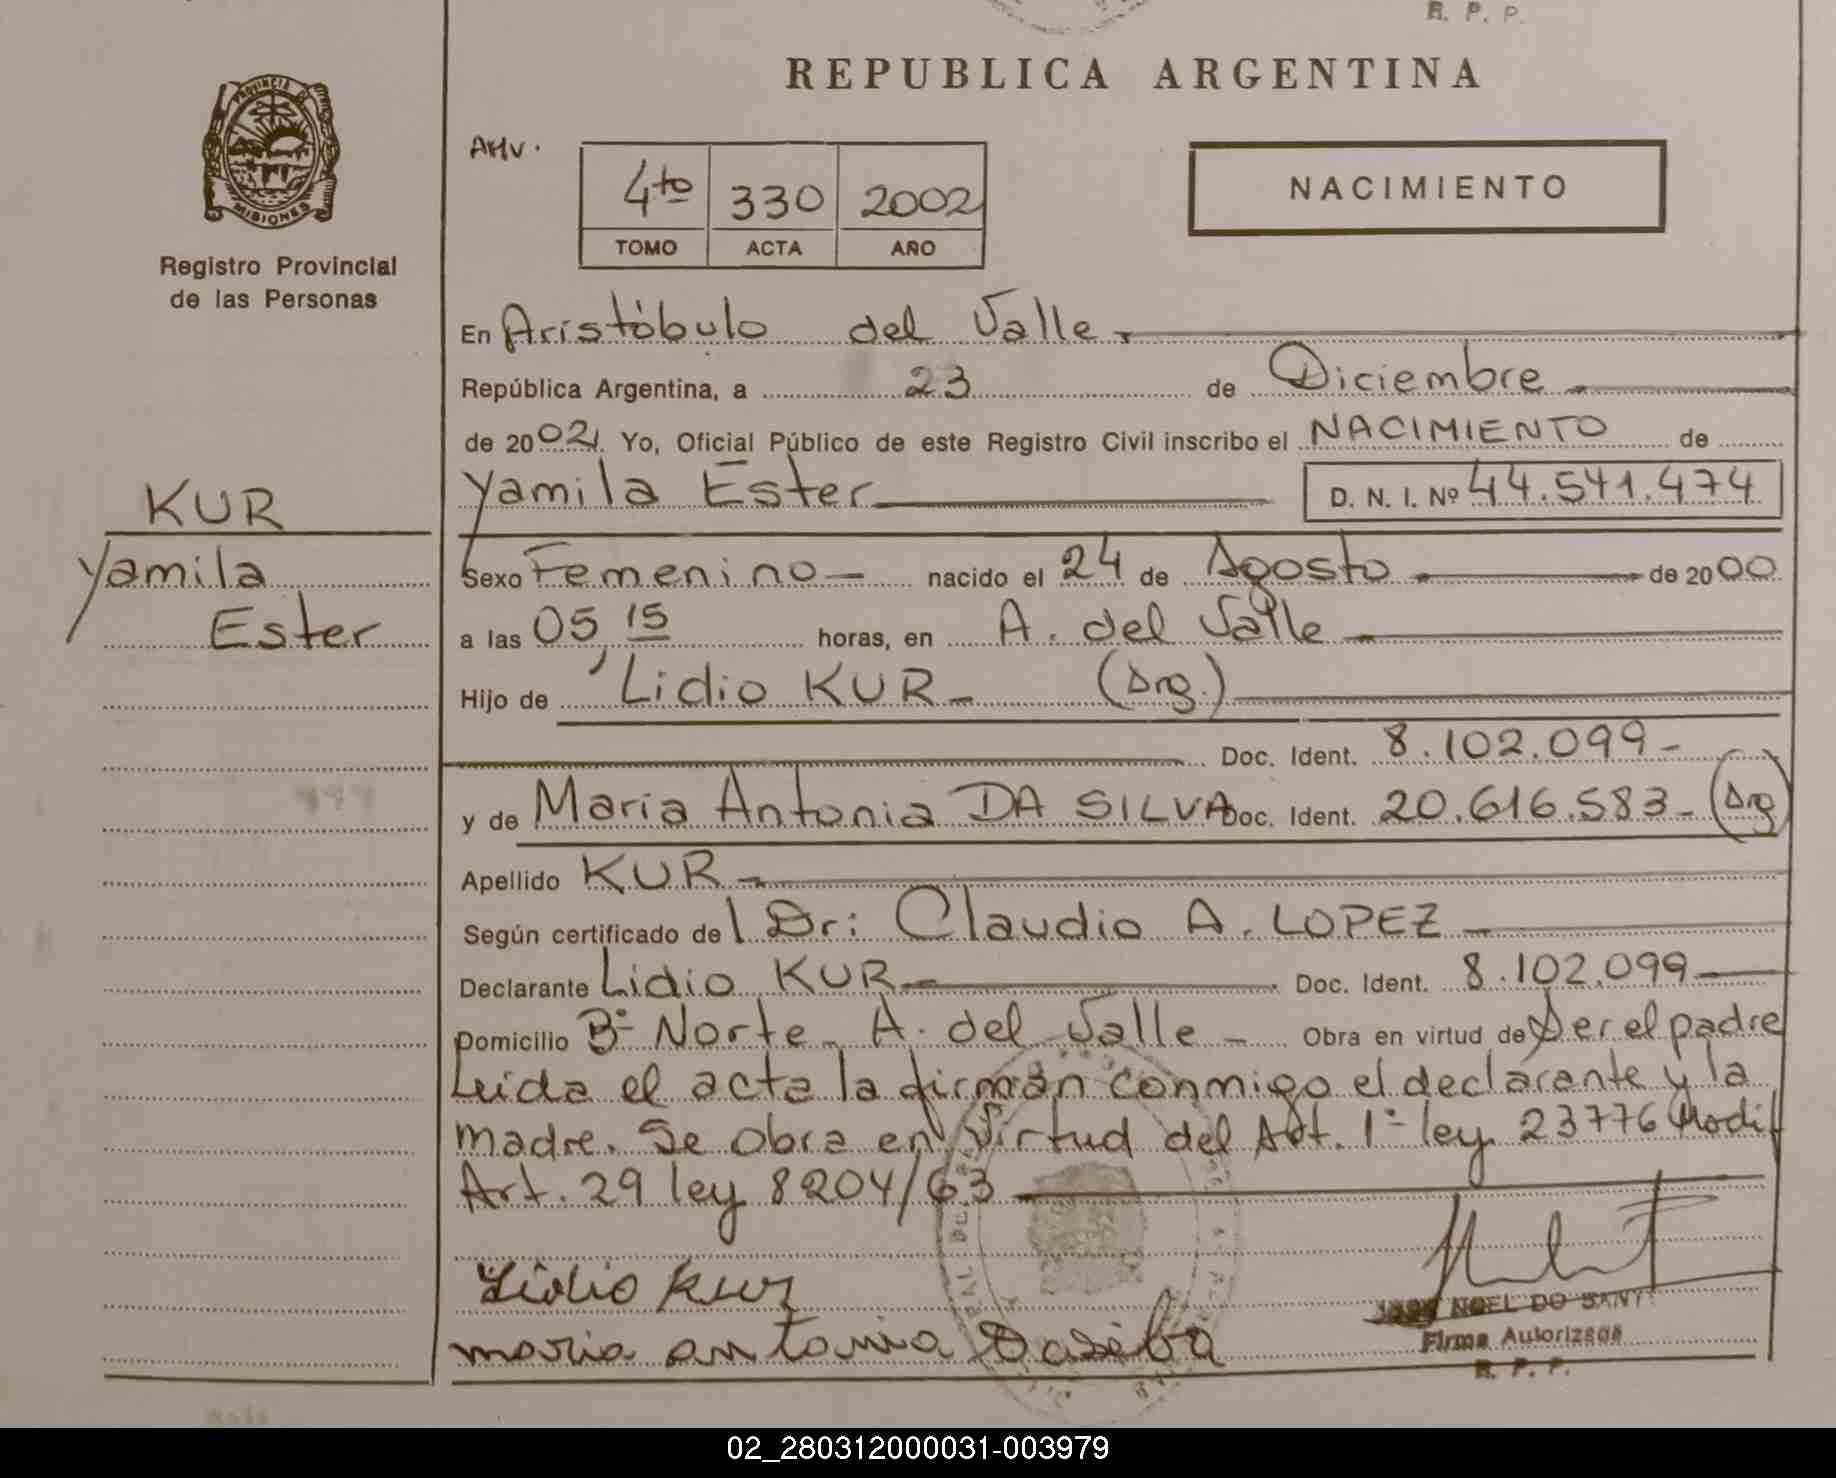 R. P. P.
REPUBLICA ARGENTINA
PROVINCIA DE
MISIONES
Registro Provincial
de las Personas
4to 330 2002
TOMO ACTA AÑO
NACIMIENTO
En Aristóbulo del Valle
República Argentina, a 23 de Diciembre
de 2002. Yo, Oficial Público de este Registro Civil inscribo el NACIMIENTO de
Yamila Ester D. N. I. Nº 44.541.474
KUR
Yamila
Ester
Sexo Femenino nacido el 24 de Agosto de 2000
a las 05 15 horas, en A. del Valle
Hijo de Lidio KUR (Arg.)
Doc. Ident. 8.102.099
y de María Antonia DA SILVA Doc. Ident. 20.616.583 (Arg
Apellido KUR
Según certificado de l Dr: Claudio A. LOPEZ
Declarante Lidio KUR Doc. Ident. 8.102.099
Domicilio Bº Norte A. del Valle Obra en virtud de Ser el padre
Leida el acta la firman conmigo el declarante y la
madre. Se obra en Virtud del Art. 1º ley 23776 Modif
Art. 29 ley 8204/63
Lidio Kur
maria antonia Dasilba
NOEL DO SANT
Firma Autorizada
R. P. P.
02_280312000031-003979